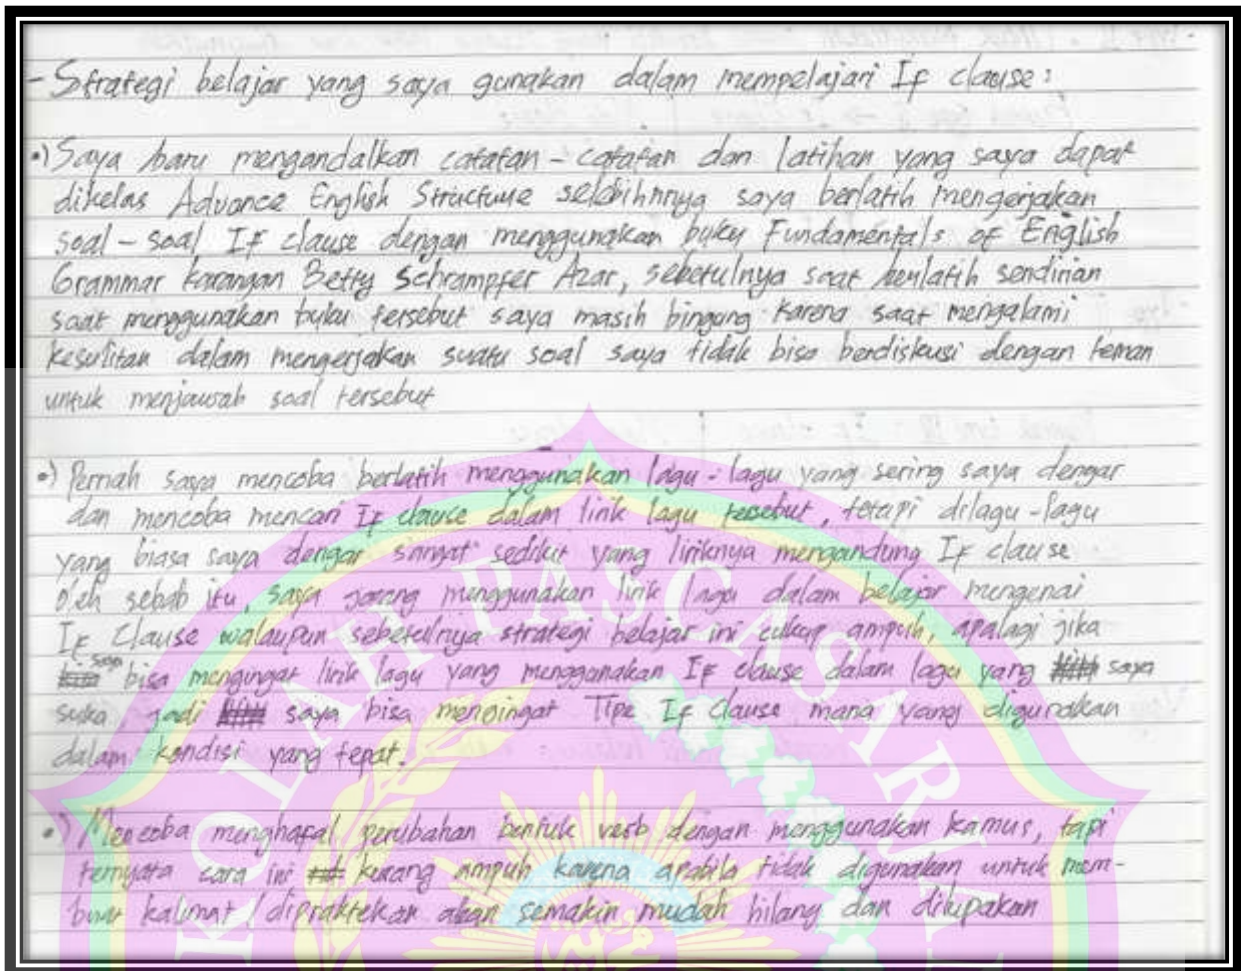 - Strategi belajar yang saya gunakan dalam mempelajari If clause :
•) Saya baru mengandalkan catatan - catatan dan latihan yang saya dapat
dikelas Advance English Structure selebihnnya saya berlatih mengerjakan
soal - soal If clause dengan menggunakan buku Fundamentals of English
Grammar karangan Betty Schrampfer Azar, sebetulnya saat berlatih sendirian
saat menggunakan buku tersebut saya masih bingung karena saat mengalami
kesulitan dalam mengerjakan suatu soal saya tidak bisa berdiskusi dengan teman
untuk menjawab soal tersebut
•) Pernah saya mencoba berlatih menggunakan lagu - lagu yang sering saya dengar
dan mencoba mencari If clause dalam lirik lagu tersebut, tetapi dilagu - lagu
yang biasa saya dengar sangat sedikit yang liriknya mengandung If clause
oleh sebab itu, saya jarang menggunakan lirik lagu dalam belajar mengenai
If Clause walaupun sebetulnya strategi belajar ini cukup ampuh, apalagi jika
saya bisa mengingat lirik lagu yang menggunakan If clause dalam lagu yang saya
suka, jadi saya bisa mengingat Tipe If Clause mana yang digunakan
dalam kondisi yang tepat.
•) Mencoba menghafal perubahan bentuk verb dengan menggunakan kamus, tapi
ternyata cara ini kurang ampuh karena apabila tidak digunakan untuk mem-
buat kalimat / dipraktekan akan semakin mudah hilang dan dilupakan
KOLAH PASCASARJA